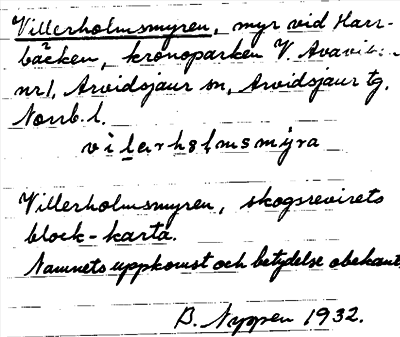 Villerholmsmyren, myr vid Harr-
bäcken, kronoparken V. Avavik.
nr 1, Arvidsjaur sn, Arvidsjaur tg.
Norrb. l.
vilerhɜlmsmyra
Villerholmsmyren, skogsrevirets
block-karta.
Namnets uppkomst och betydelse obekant.
B. Nyppen 1932.